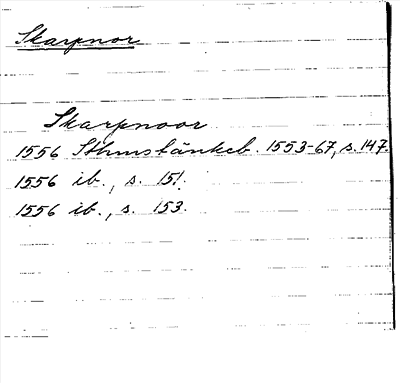 Skarpnor
Skarpnoor
1556 Sthmstänkeb. 1553-67, s. 147.
1556 ib., s. 151.
1556 ib., s. 153.